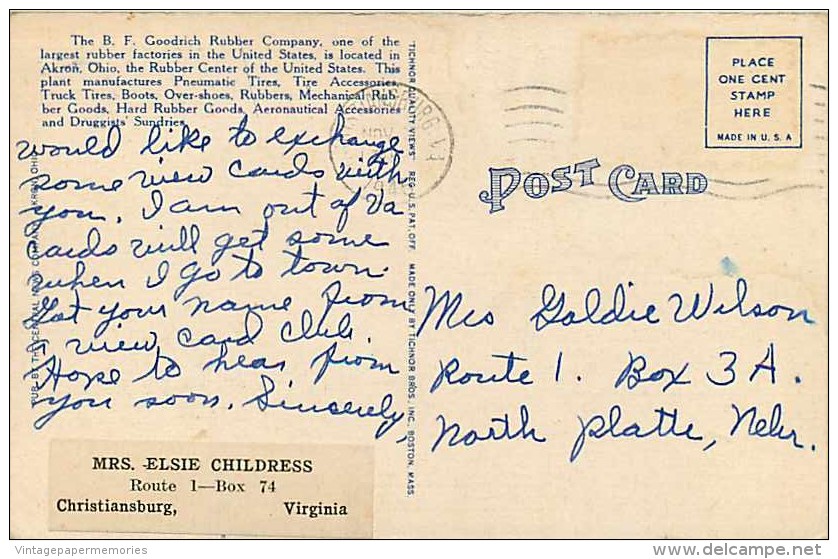 The B. F. Goodrich Rubber Company, one of the
largest rubber factories in the United States, is located in
Akron, Ohio, the Rubber Center of the United States. This
plant manufactures Pneumatic Tires, Tire Accessories,
Truck Tires, Boots, Over-shoes, Rubbers, Mechanical Rub-
ber Goods, Hard Rubber Goods, Aeronautical Accessories
and Druggists' Sundries.
would like to exchange
some view cards with
you. I am out of Va
cards will get some
when I go to town.
Got your name from
a view card club.
Hope to hear from
you soon. Sincerely,
MRS. ELSIE CHILDRESS
Route 1—Box 74
Christiansburg, Virginia
PUB. BY THE CENTRAL NEWS COMPANY, AKRON, OHIO
"TICHNOR QUALITY VIEWS" REG. U. S. PAT. OFF. MADE ONLY BY TICHNOR BROS. INC., BOSTON, MASS.
NOV
POST CARD
PLACE
ONE CENT
STAMP
HERE
MADE IN U. S. A
Mrs Goldie Wilson
Route 1. Box 3A.
North Platte, Nebr.
Vintagepapermemories
delcampe.net